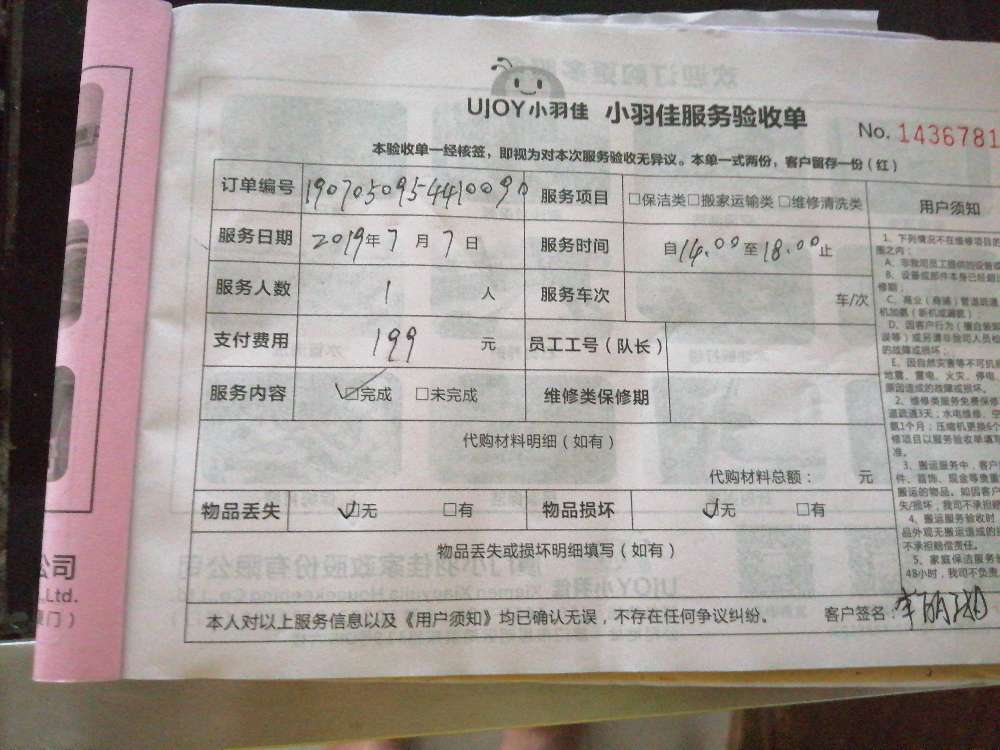 UJOY小羽佳 小羽佳服务验收单
No. 1436781
本验收单一经核签，即视为对本次服务验收无异议。本单一式两份，客户留存一份（红）
订单编号 190705095441009 服务项目 □保洁类□搬家运输类□维修清洗类 用户须知
服务日期 2019年7月7日 服务时间 自14.00至18.00止
服务人数 1 人 服务车次 车/次
支付费用 199 元 员工工号（队长）
服务内容 ☑完成 □未完成 维修类保修期
代购材料明细（如有）
代购材料总额： 元
物品丢失 ☑无 □有 物品损坏 ☑无 □有
物品丢失或损坏明细填写（如有）
本人对以上服务信息以及《用户须知》均已确认无误，不存在任何争议纠纷。 客户签名：
1、下列情况不在维修项目的
围之内：
A、非我司员工提供的设备或
B、设备或部件本身已经超
修期；
C、商业（商通）管道疏通
机加氨（新机或漏氨）；
D、因客户行为（擅自装
误等）或另请非我司人员检
的故障或损坏；
E、因自然灾害等不可抗
地震、雷电、火灾、停电
原因造成的故障或损坏。
2、维修类服务免费保修
道疏通3天；水电维修、
氨1个月；压缩机更换6个
修项目以服务验收单填写
准。
3、搬运服务中，客户
件、首饰、现金等贵重
搬运的物品。如因客户
失/损坏，我司不承担赔
4、搬运服务验收时，
品外观无搬运造成的
不承担赔偿责任。
5、家庭保洁服务
48小时，我司不负责
公司
.,Ltd.
门）